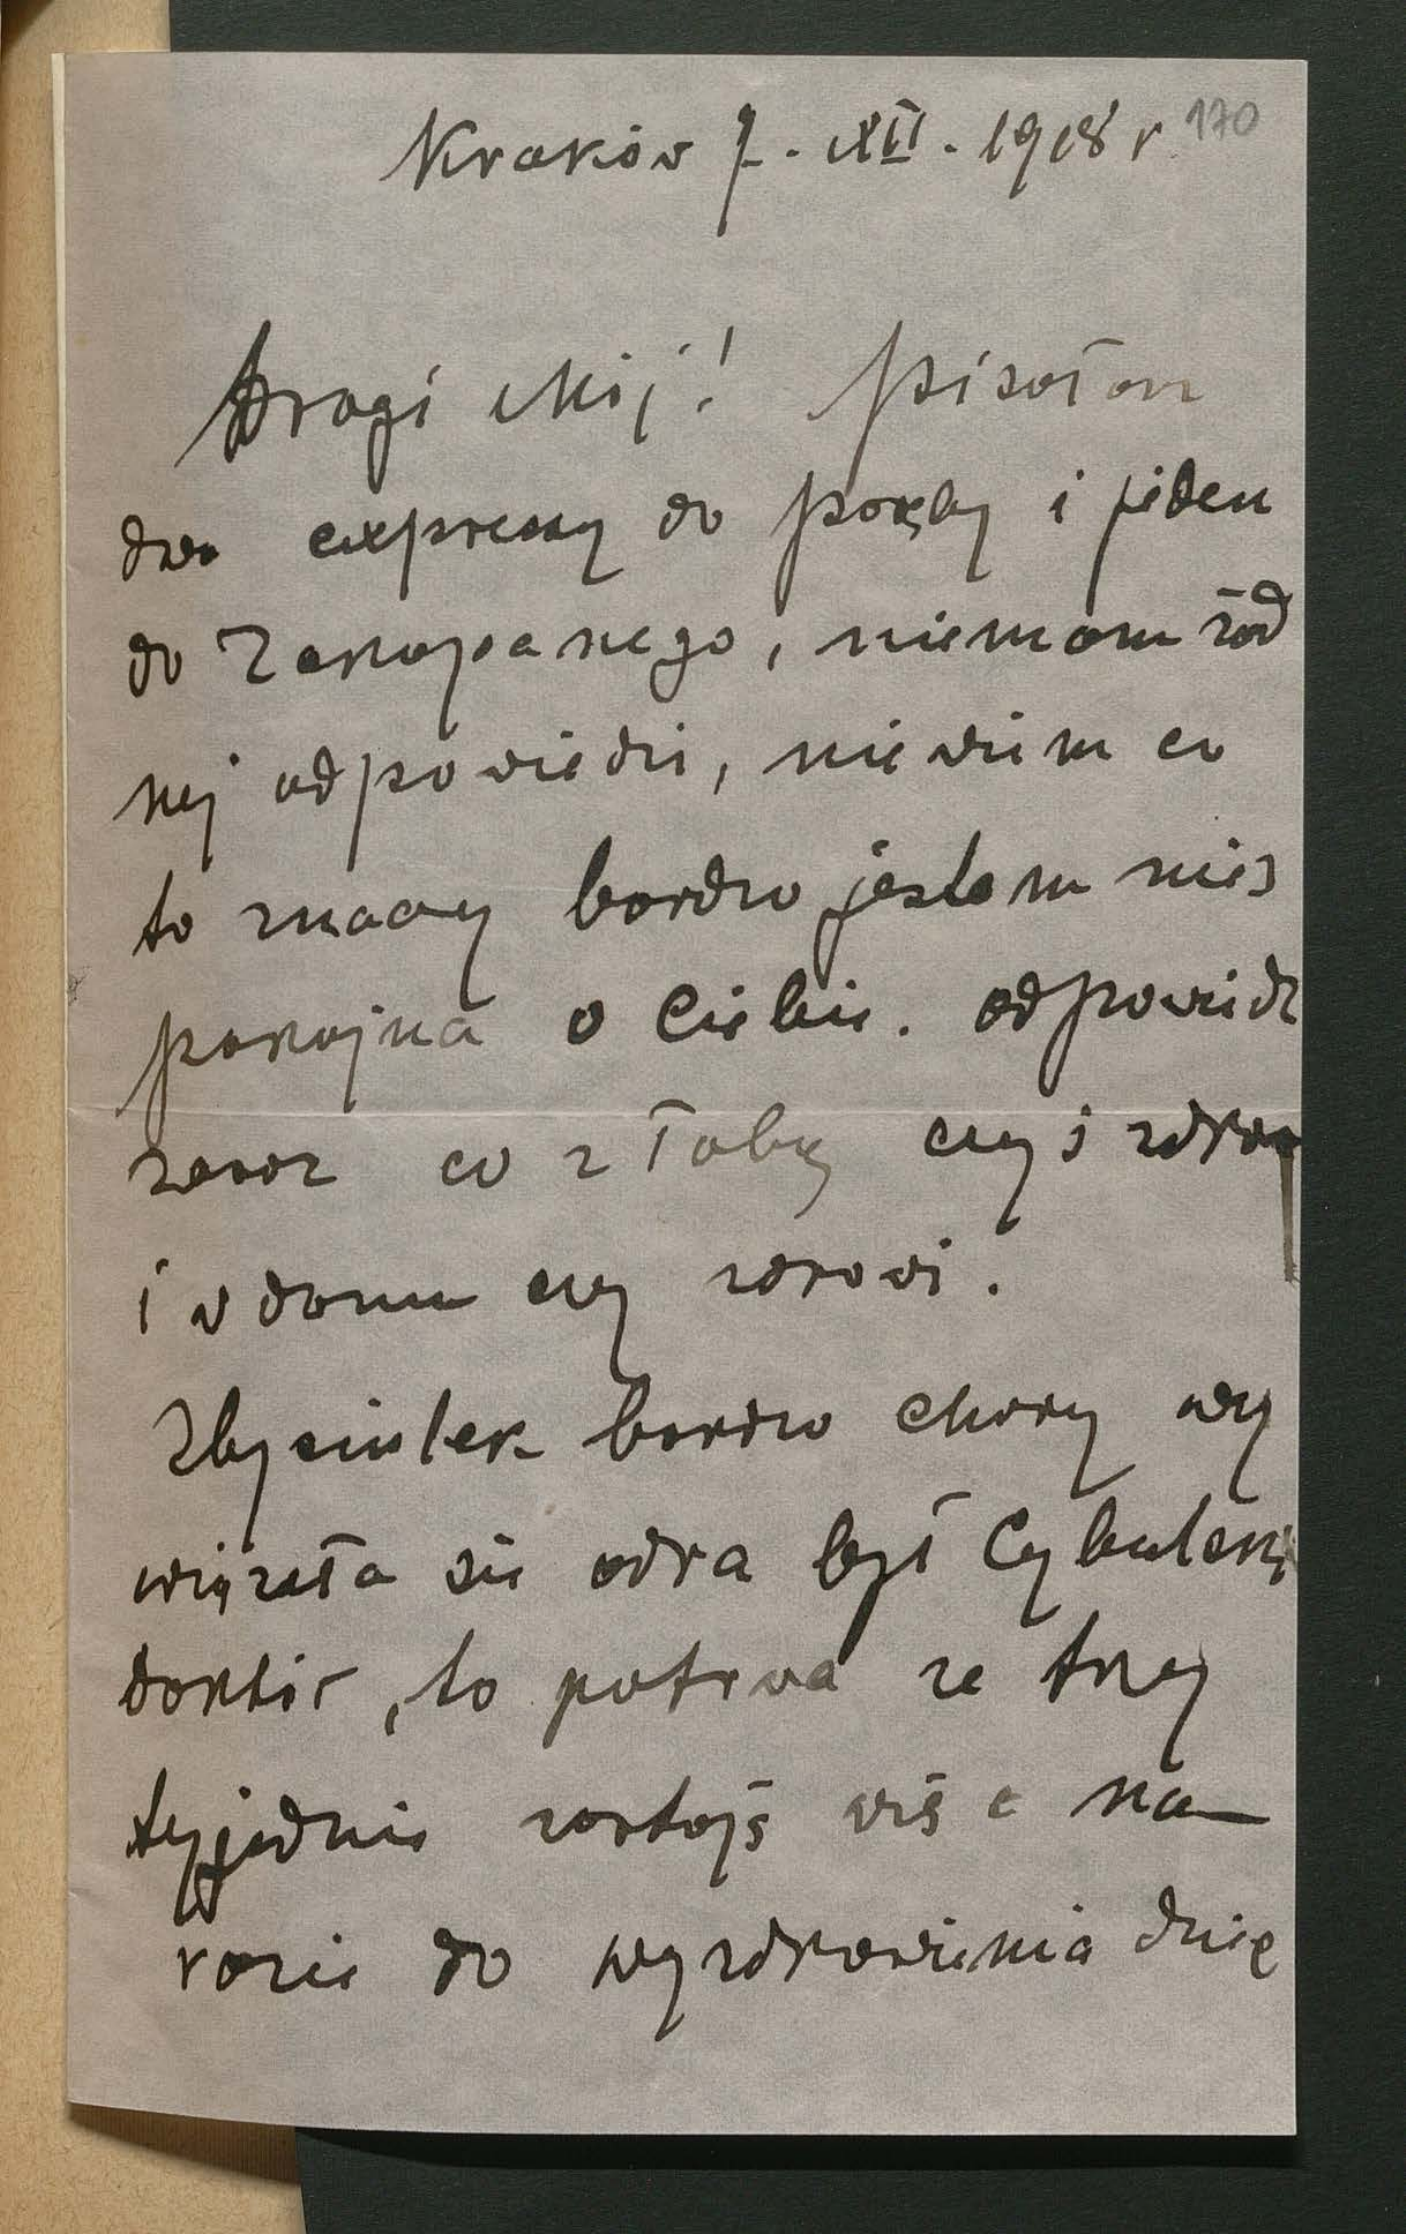 Kraków 7. XII. 1918 r 170
Drogi Mój! pisałam
dwa expressy do poręby i jeden
do Zakopanego, niemam żad
nej odpowiedzi, niewiem co
to znaczy bardzo jestem nies
pokojna o Ciebie. odpowiedz
zaraz co z Tobą czyś zdrow
i w domu czy zdrowi.
Zbysiulek bardzo chory wy
wiązała się odra był Cybulski
doktór, to potrwa ze trzy
tyjednie zostajś wiś c na
razie do wyzdrowienia dzie